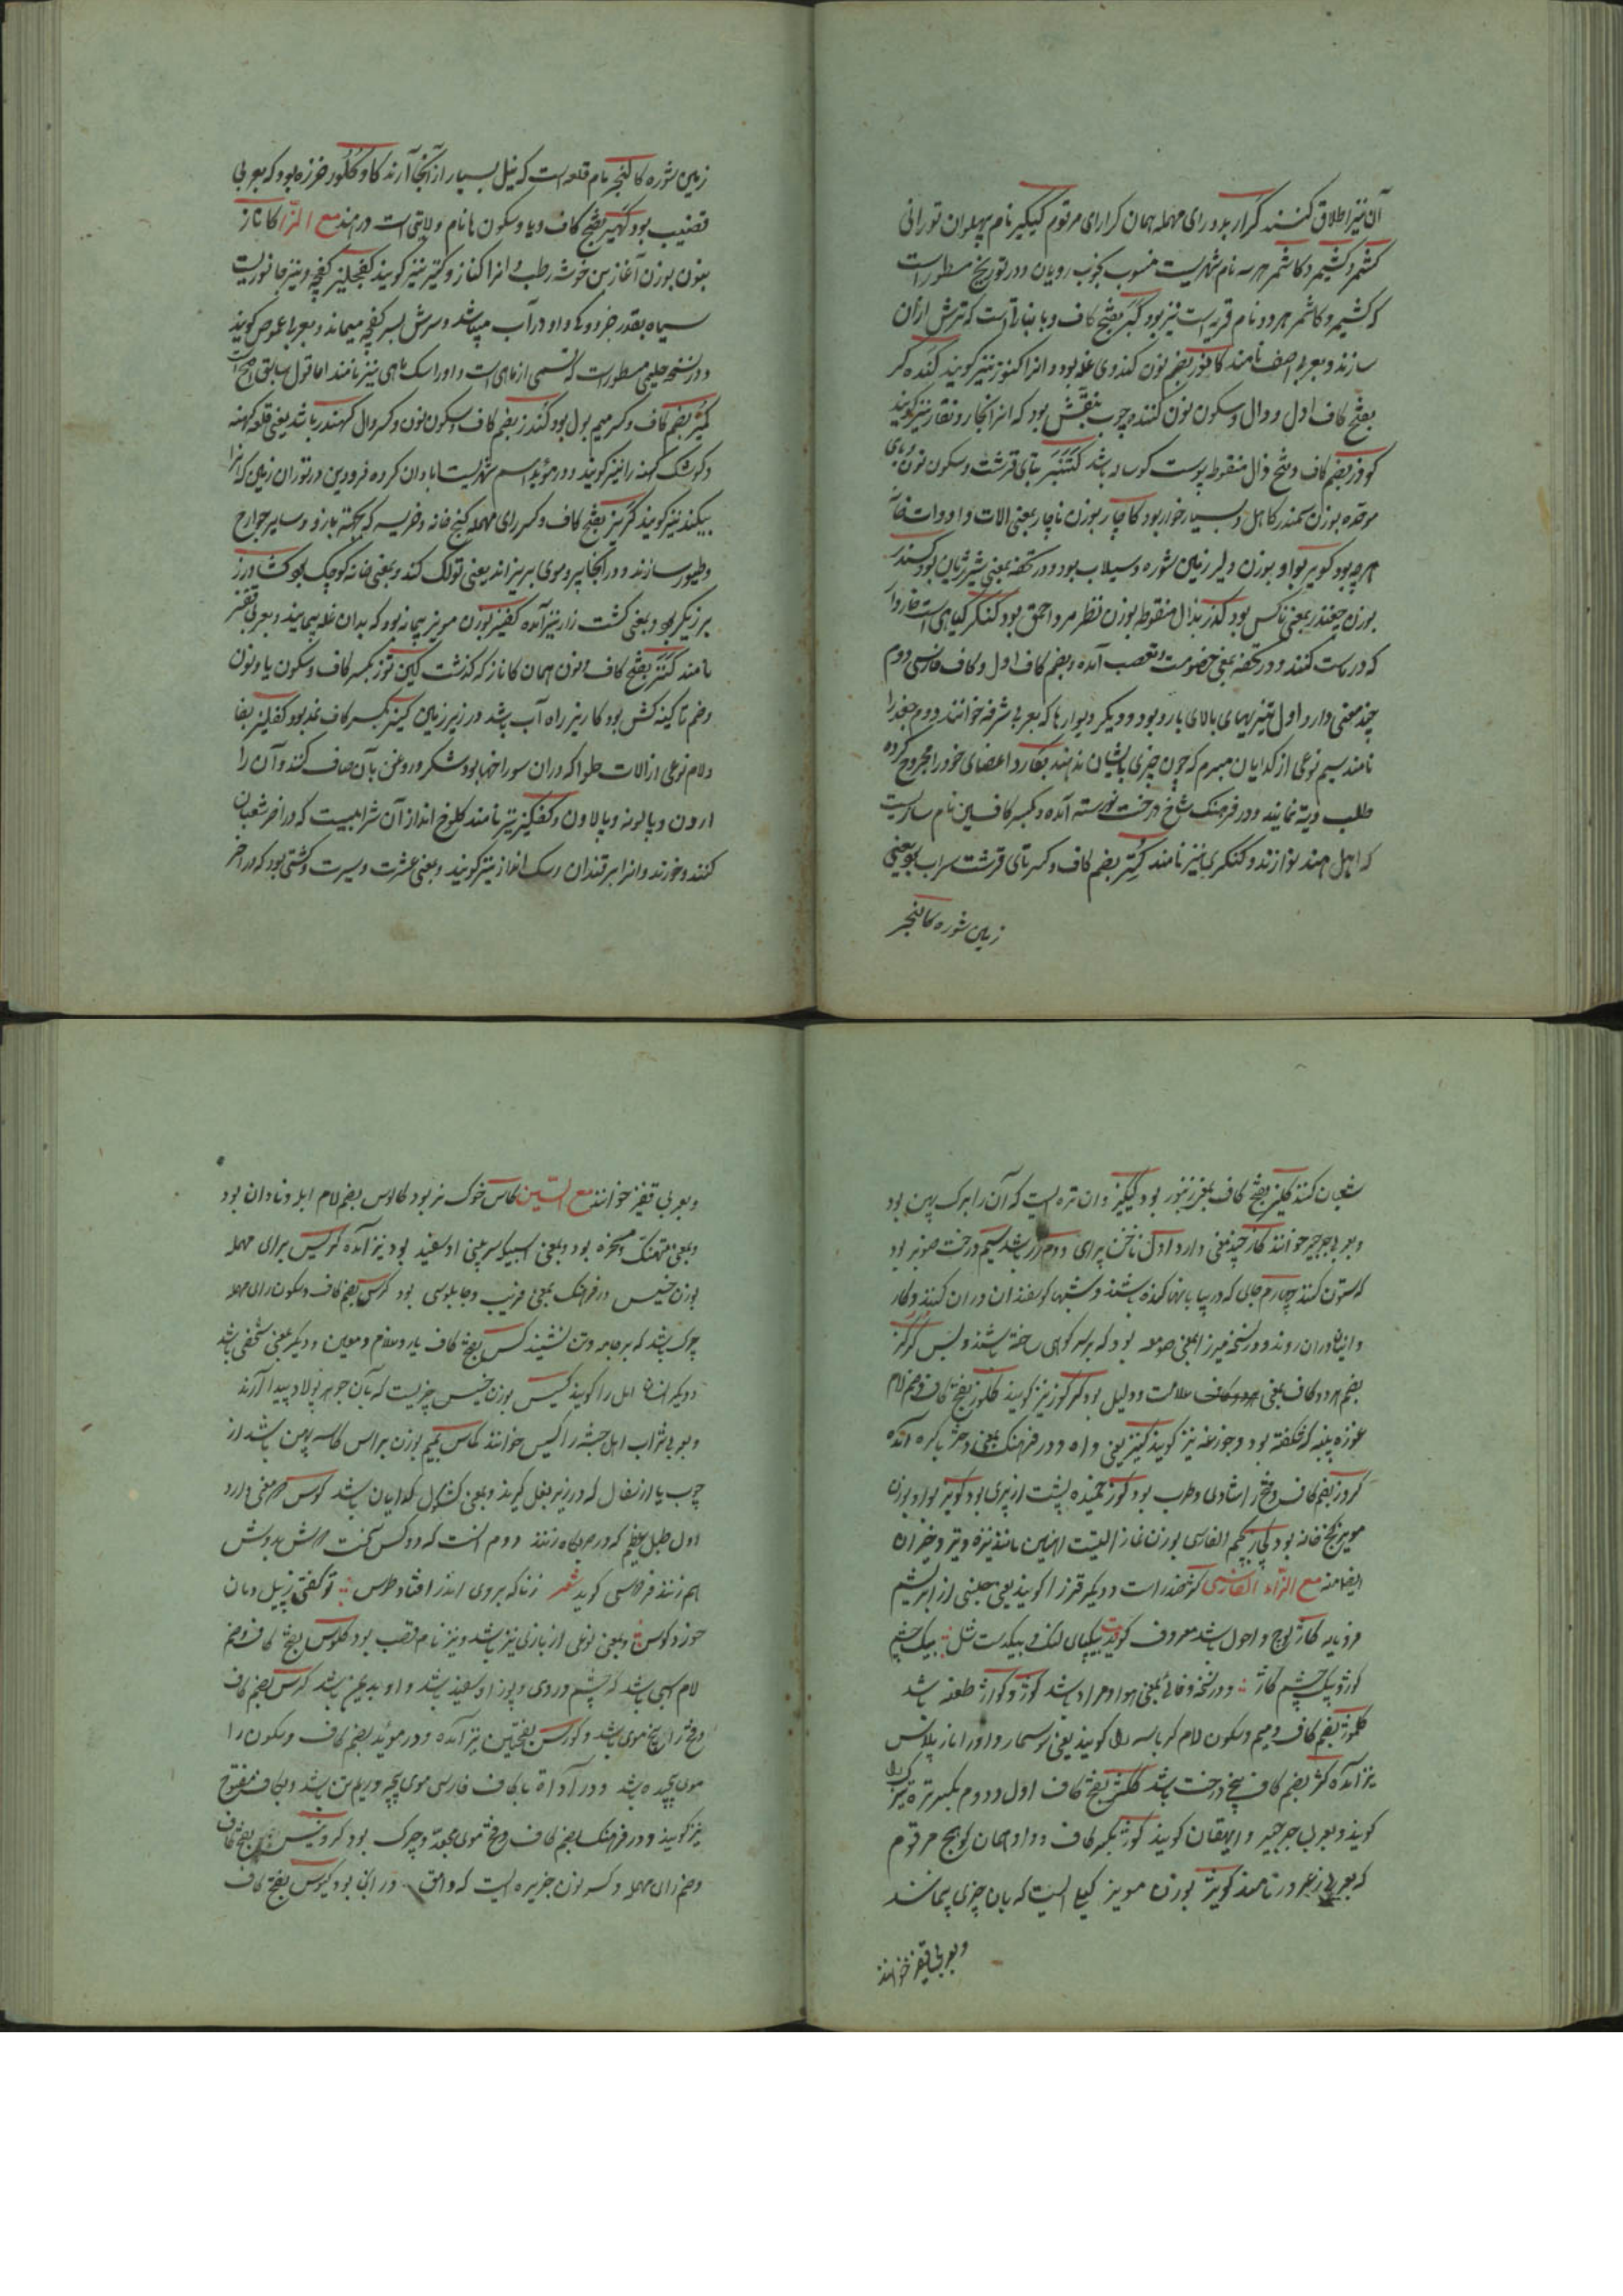 آن نیز اطلاق کنند کرار بدو رای مهمله همان کرارای مرقوم کیکیر نام پهلوان تورانی
کشمر و کشمیر و کاشمر هر سه نام شهریست منسوب بخوب رویان و در تواریخ مسطور است
که کشمیر و کاشمر هر دو نام قریه است نیز بود کبر بفتح کاف و با نباتی است که ترش از آن
سازند و بعربی اصف نامند کانور بضم نون کندوی غله بود و انرا کنور نیز کویند کنده کر
بفتح کاف اول و دال و سکون نون کننده چوب بنقش بود که انرا نجار و نقار نیز کویند
کوذر بضم کاف و فتح ذال منقوطه پوست کوساله باشد کنبر بتای قرشت و سکون نون و بای
موحده بوزن سمندر کاهل و بسیار خوار بود کاچار بوزن ناچار بمعنی الات و ادوات خانه
هر چه بود کویر بواو بوزن دلیر زمین شوره و سیلاب بود و در تحفه بمعنی شیر ژیان بود کسندر
بوزن چغندر بمعنی ناکس بود کذر بذال منقوطه بوزن نظر مرد احمق بود کنکر کیاهی است خاردار
که در ماست کنند و در تحفه بمعنی خصومت و تعصب آمده و بضم کاف اول و کاف فارسی دوم
چند معنی دارد اول تیزیهای بالای بارو بود و دیکر دیوارها که بعربی شرفه خوانند دوم جغد را
نامند سیم نوعی از کدایان مبرم که چون چیزی بایشان ندهند بکارد اعضای خود را مجروح کرده
طلب دیه نمایند و در فرهنک شاخ درخت نورسته آمده و بکسر کافین نام سازیست
که اهل هند نوازند و کنکری نیز نامند کتر بضم کاف و کسر تای قرشت سراب بود یعنی
زمین شوره کالنجر
زمین شوره کالنجر نام قلعه است که نیل بسیار از آنجا آرند کاو کلور خرزه بود که بعربی
قضیب بود کهیر بفتح کاف و یا و سکون ها نام ولایتی است در هند مع الزا کاناز
بنون بوزن آغاز بن خوشه رطب و انرا کناز و کنیز نیز کویند کفچلیز کفچه و نیز جانوریست
سیاه بقدر خر و او در آب میباشد و سرش بسر کفچه میماند و بعربی دعموص کویند
و در نسخه حلیمی مسطور است که قسمی از ماهی است و او را سک ماهی نیز نامند اما قول سابق اصح است
کمیز بضم کاف و کسر میم بول بود کندز بضم کاف و سکون نون و کسر دال کهندز باشد یعنی قلعه کهنه
و کوشک کهنه را نیز کویند و در مؤید اسم شهریست ابادان کرده فریدون در توران زمین که انرا
بیکند نیز کویند کریز بفتح کاف و کسر رای مهمله کنج خانه و خریسه که بجهة باز و سایر جوارح
و طیور سازند و در انجا پر و موی بریزاند یعنی تولک کند و بمعنی خانه کوچک بود کشاورز
برزیکر بود و بمعنی کشت زار نیز آمده کفیز بوزن مویز پیمانه بود که بدان غله پیمایند و بعربی قفیز
نامند کنز بفتح کاف و نون همان کاناز که کذشت کین توز بکسر کاف و سکون یا و نون
و ضم تا کینه کش بود کاریز راه آب باشد در زیر زمین کیز بکسر کاف نمد بود کفلیز بفا
و لام نوعی از الات حلوا که در آن سوراخها بود و شکر و روغن بآن صاف کنند و آن را
اردن و پالونه و پالاون و کفکیز نیز نامند کلوخ انداز آن شرابیست که در اخر شعبان
کنند و خورند و انرا برقندان و سنک انداز نیز کویند و بمعنی عشرت و سیرت و کشتی بود که در اخر
شعبان کنند کلیز بفتح کاف بلغز زنبور بود کیکیز و ان تره ایست که آن را برک پهن بود
و بعربی جرجیر خوانند کاز چند معنی دارد اول ناخن پرای دوم باشد سیم درخت صنوبر بود
که ستون کنند چهارم جای که در بیابانها کنده باشند و شبها کوسفندان در ان کنند و کار
و انیان در ان روند و در نسخه میرزا بمعنی صومعه بود که بر سر کوهی ساخته باشند و بس کرکز
بضم هر دو کاف بمعنی علامت و دلیل بود کرکوز نیز کویند کلوز بفتح کاف و ضم لام
غوزه پنبه که شکفته بود و جوزغه نیز کویند کنیز یعنی داه و در فرهنک بمعنی دختر باکره آمده
کروز بضم کاف و فتح را شادی و طرب بود کوز خمیده پشت از پیری بود کویز بواو بوزن
مویز کنج خانه بود کپاز بجیم الفارسی بوزن نماز التیست اهنین مانند نیزه و تبر و جز ان
ایضا منه مع الزاء الفارسی کژ ضد راست و دیکر قز را کویند یعنی جنسی از ابریشم
فرومایه کاژ لوچ و احول باشد معروف کوید بیکپای لنک و بیکدست شل بیک چشم
کور و بیک چشم کاژ و در نسخه وفائی بمعنی هوا و مراد باشد کوژ و کواژ طعنه باشد
کلمژ بضم کاف و میم و سکون لام کرباسه را کویند یعنی سوسمار و او را ماز پلاس
نیز آمده کژ بضم کاف بیخ درخت باشد ککژ بفتح کاف اول و دوم بمکسر تره تیزک را
کویند و بعربی جرجیر و ایهقان کویند کوژ بکسر کاف و واو همان کویج مرقوم
که بعربی زعرور نامند کویژ بوزن مویز کیل ایست که بان چیزی پیمانند
و بعربی قفیز خوانند
و بعربی قفیز خوانند مع السین کاس خوک نر بود کالوس بضم لام ابله و نادان بود
و بمعنی متهتک و مسخره بود و بمعنی اسپی که سر بینی او سفید بود نیز آمده کریس برای مهمله
بوزن خسیس در فرهنک بمعنی فریب و چابلوسی بود کرس بضم کاف و سکون رای مهمله
چرک باشد که بر جامه و تن نشیند کس بفتح کاف یار و ملازم و معین و دیکر بمعنی شخصی باشد
و دیکر اهل را کویند کیس بوزن خسیس چیزیست که بآن جوهر پولاد پیدا آرند
و بعربی تراب اهل حبشه را کیس خوانند کماس بمیم بوزن براس کاسه پهن باشد از
چوب یا از سفال که در زیر بغل کیرند و بمعنی کشکول کدایان باشد کوس معنی دارد
اول طبل عظیم که در حربکاه زنند دوم انست که دو کس سخت دوش بدوش
بهم زنند فردوسی کوید شعر زناکه بروی اندر افتاد طوس تو کفتی ز پیل دمان
خورد کوس و بمعنی نوعی از بازی نیز باشد و نیز نام قصبه بود کلوس بفتح کاف و ضم
لام اسبی باشد که چشم و روی و پوز او سفید باشد و او بد یمن باشد کرس بضم کاف
و فتح را پیچ موی باشد و کورس بضمتین نیز آمده و در مؤید بضم کاف و سکون را
موی پیچیده باشد و در آداة با کاف فارسی موی پیچه و ریم تن باشد و بکاف مفتوح
نیز کویند و در فرهنک بضم کاف و فتح موی مجعد و چرک بود کرونیس بفتح کاف
و ضم رای مهمله و کسر نون جزیره ایست که وامق در انی بود کیوس بفتح کاف